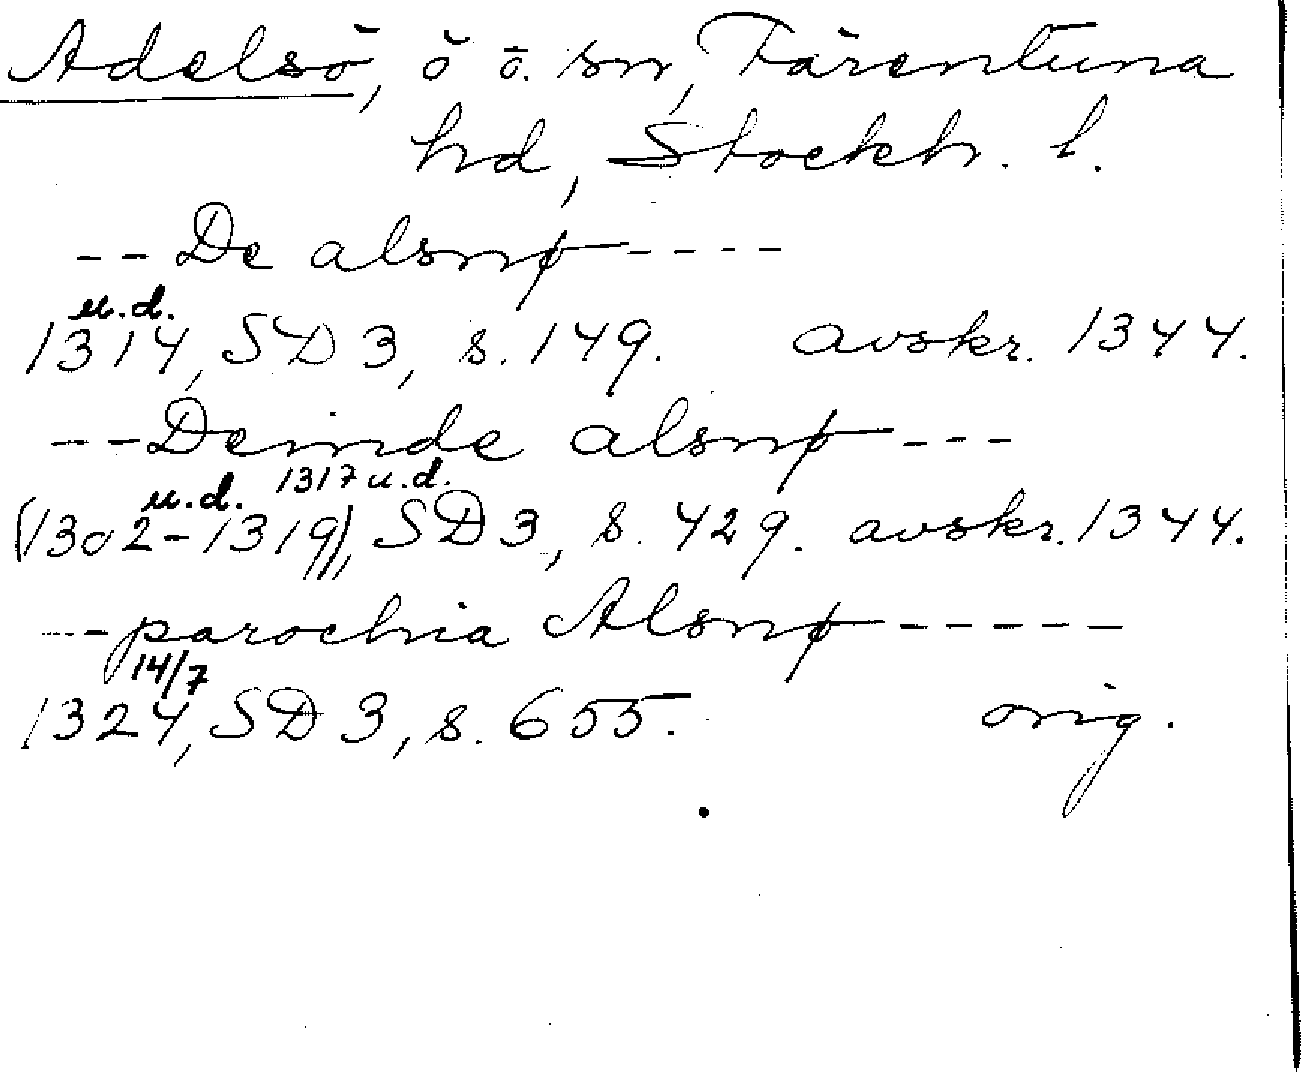 Adelsö, ö o. sn, Färentuna
hd, Stockh. l.
-- De alsnø ----
u.d.
1314, SD 3, s. 149. avskr. 1344.
-- Deinde alsnø ---
u.d. 1317 u.d.
(1302-1319), SD 3, s. 429. avskr. 1344.
--- parochia Alsnø -----
14/7
1324, SD 3, s. 655. orig.